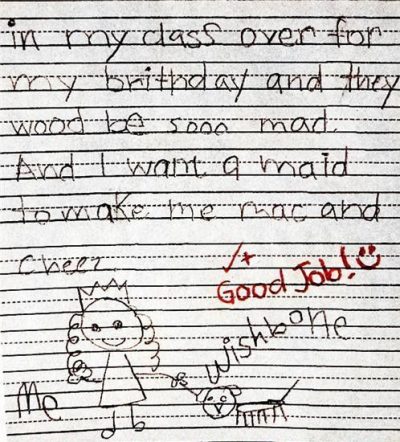 in my class over for
my brithday and they
wood be sooo mad.
And I want a maid
to make me mac and
cheez
✓+
Good Job!
wishbone
Me